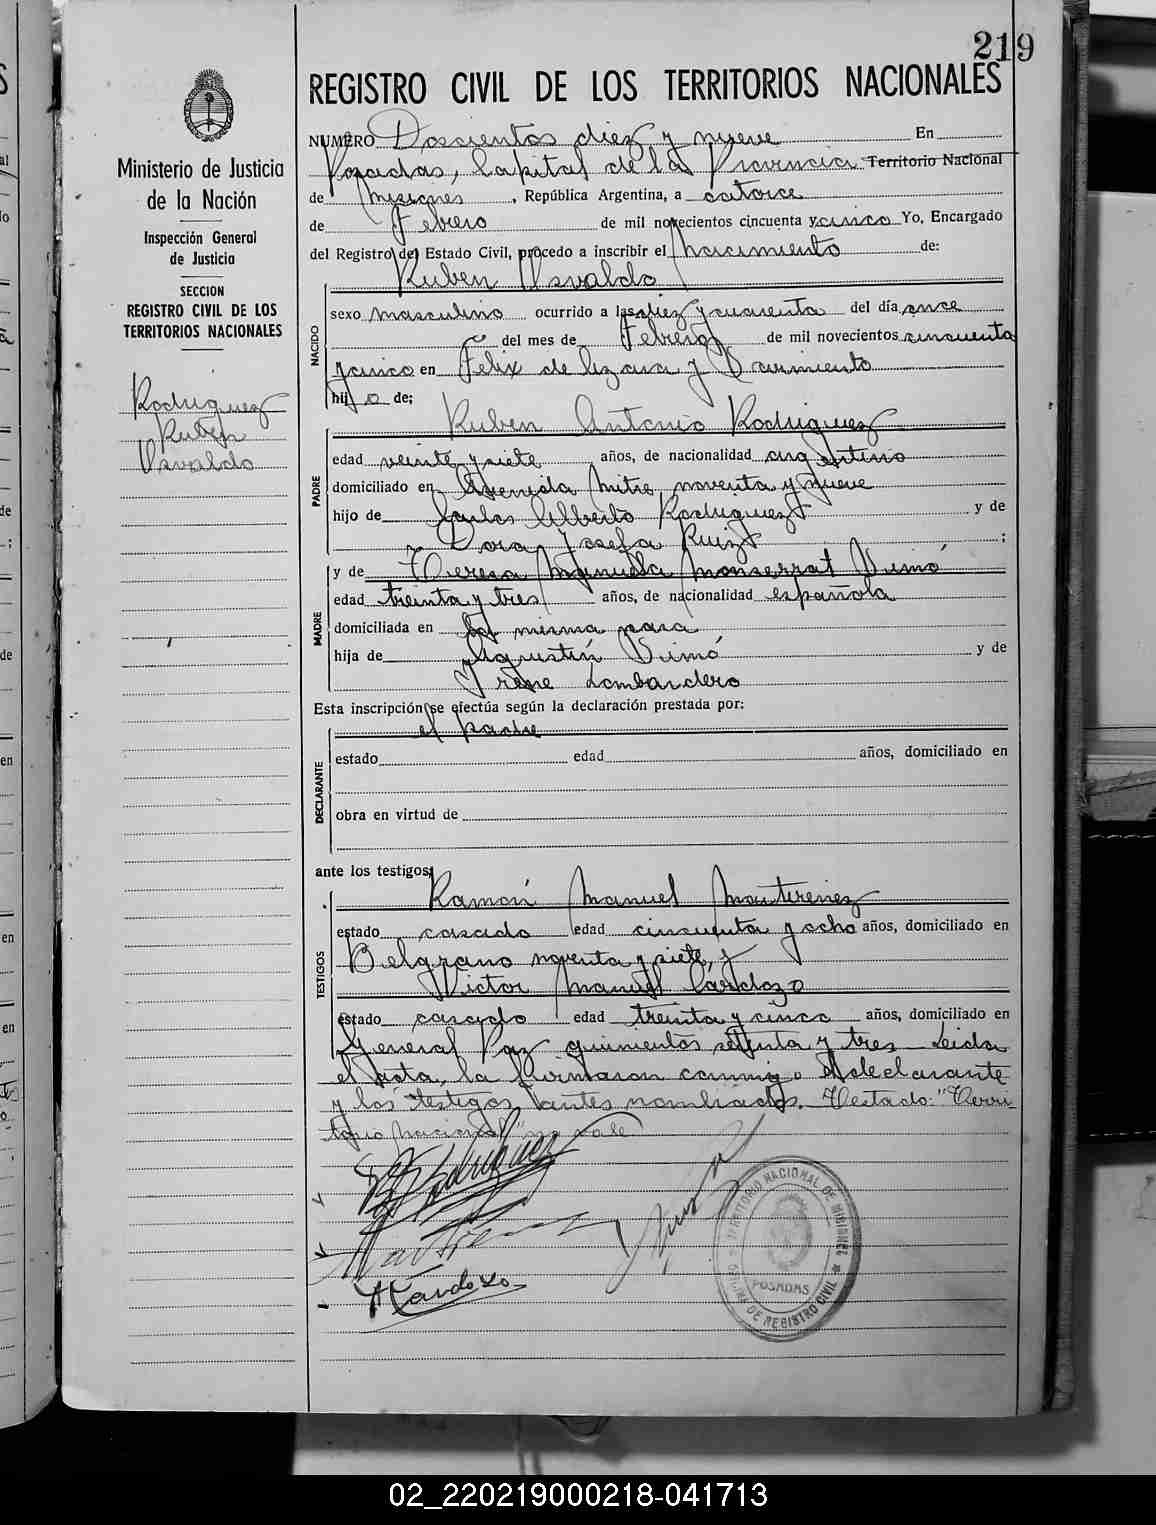 219
Ministerio de Justicia
de la Nación
Inspección General
de Justicia
SECCION
REGISTRO CIVIL DE LOS
TERRITORIOS NACIONALES
Rodriguez
Ruben
Osvaldo
REGISTRO CIVIL DE LOS TERRITORIOS NACIONALES
NUMERO Doscientos diez y nueve En
Posadas, Capital de la Provincia Territorio Nacional
de Misiones, República Argentina, a catorce
de Febrero de mil novecientos cincuenta y cinco Yo, Encargado
del Registro del Estado Civil, procedo a inscribir el Nacimiento de:
Ruben Osvaldo
NACIDO
sexo masculino ocurrido a las diez y cuarenta del día once
del mes de Febrero de mil novecientos cincuenta
y cinco en Felix de Azara y Sarmiento
hijo de;
Ruben Antonio Rodriguez
PADRE
edad veinte y siete años, de nacionalidad argentino
domiciliado en Avenida Mitre noventa y nueve
hijo de Carlos Alberto Rodriguez y de
Dora Josefa Ruiz ;
y de Teresa Manuela Monserrat Simó
MADRE
edad treinta y tres años, de nacionalidad española
domiciliada en la misma casa
hija de Agustín Simó y de
Irene Lombardero
Esta inscripción se efectúa según la declaración prestada por:
el padre
DECLARANTE
estado edad años, domiciliado en
obra en virtud de
ante los testigos
Ramón Manuel
TESTIGOS
estado casado edad cincuenta y ocho años, domiciliado en
Belgrano noventa y siete, y
Victor Manuel Cardozo
estado casado edad treinta y cinco años, domiciliado en
General Paz quinientos setenta y tres Leida
el acta, la firmaron conmigo el declarante
y los testigos antes nombrados. Testado: "Terri
torio Nacional" no vale
Rodriguez
Cardozo
OFICINA DE REGISTRO CIVIL TERRITORIO NACIONAL DE MISIONES
POSADAS
02_220219000218-041713